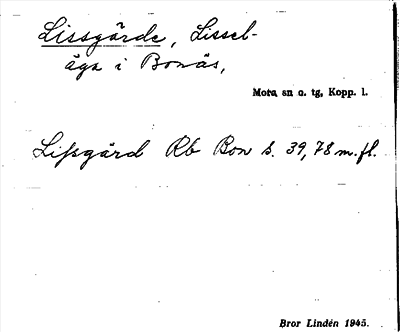 Lissgårde, Lissel-
äga i Bonäs,
Mora sn o. tg, Kopp. l.
Lißgärd Rb Bon s. 39, 78 m. fl.
Bror Lindén 1945.